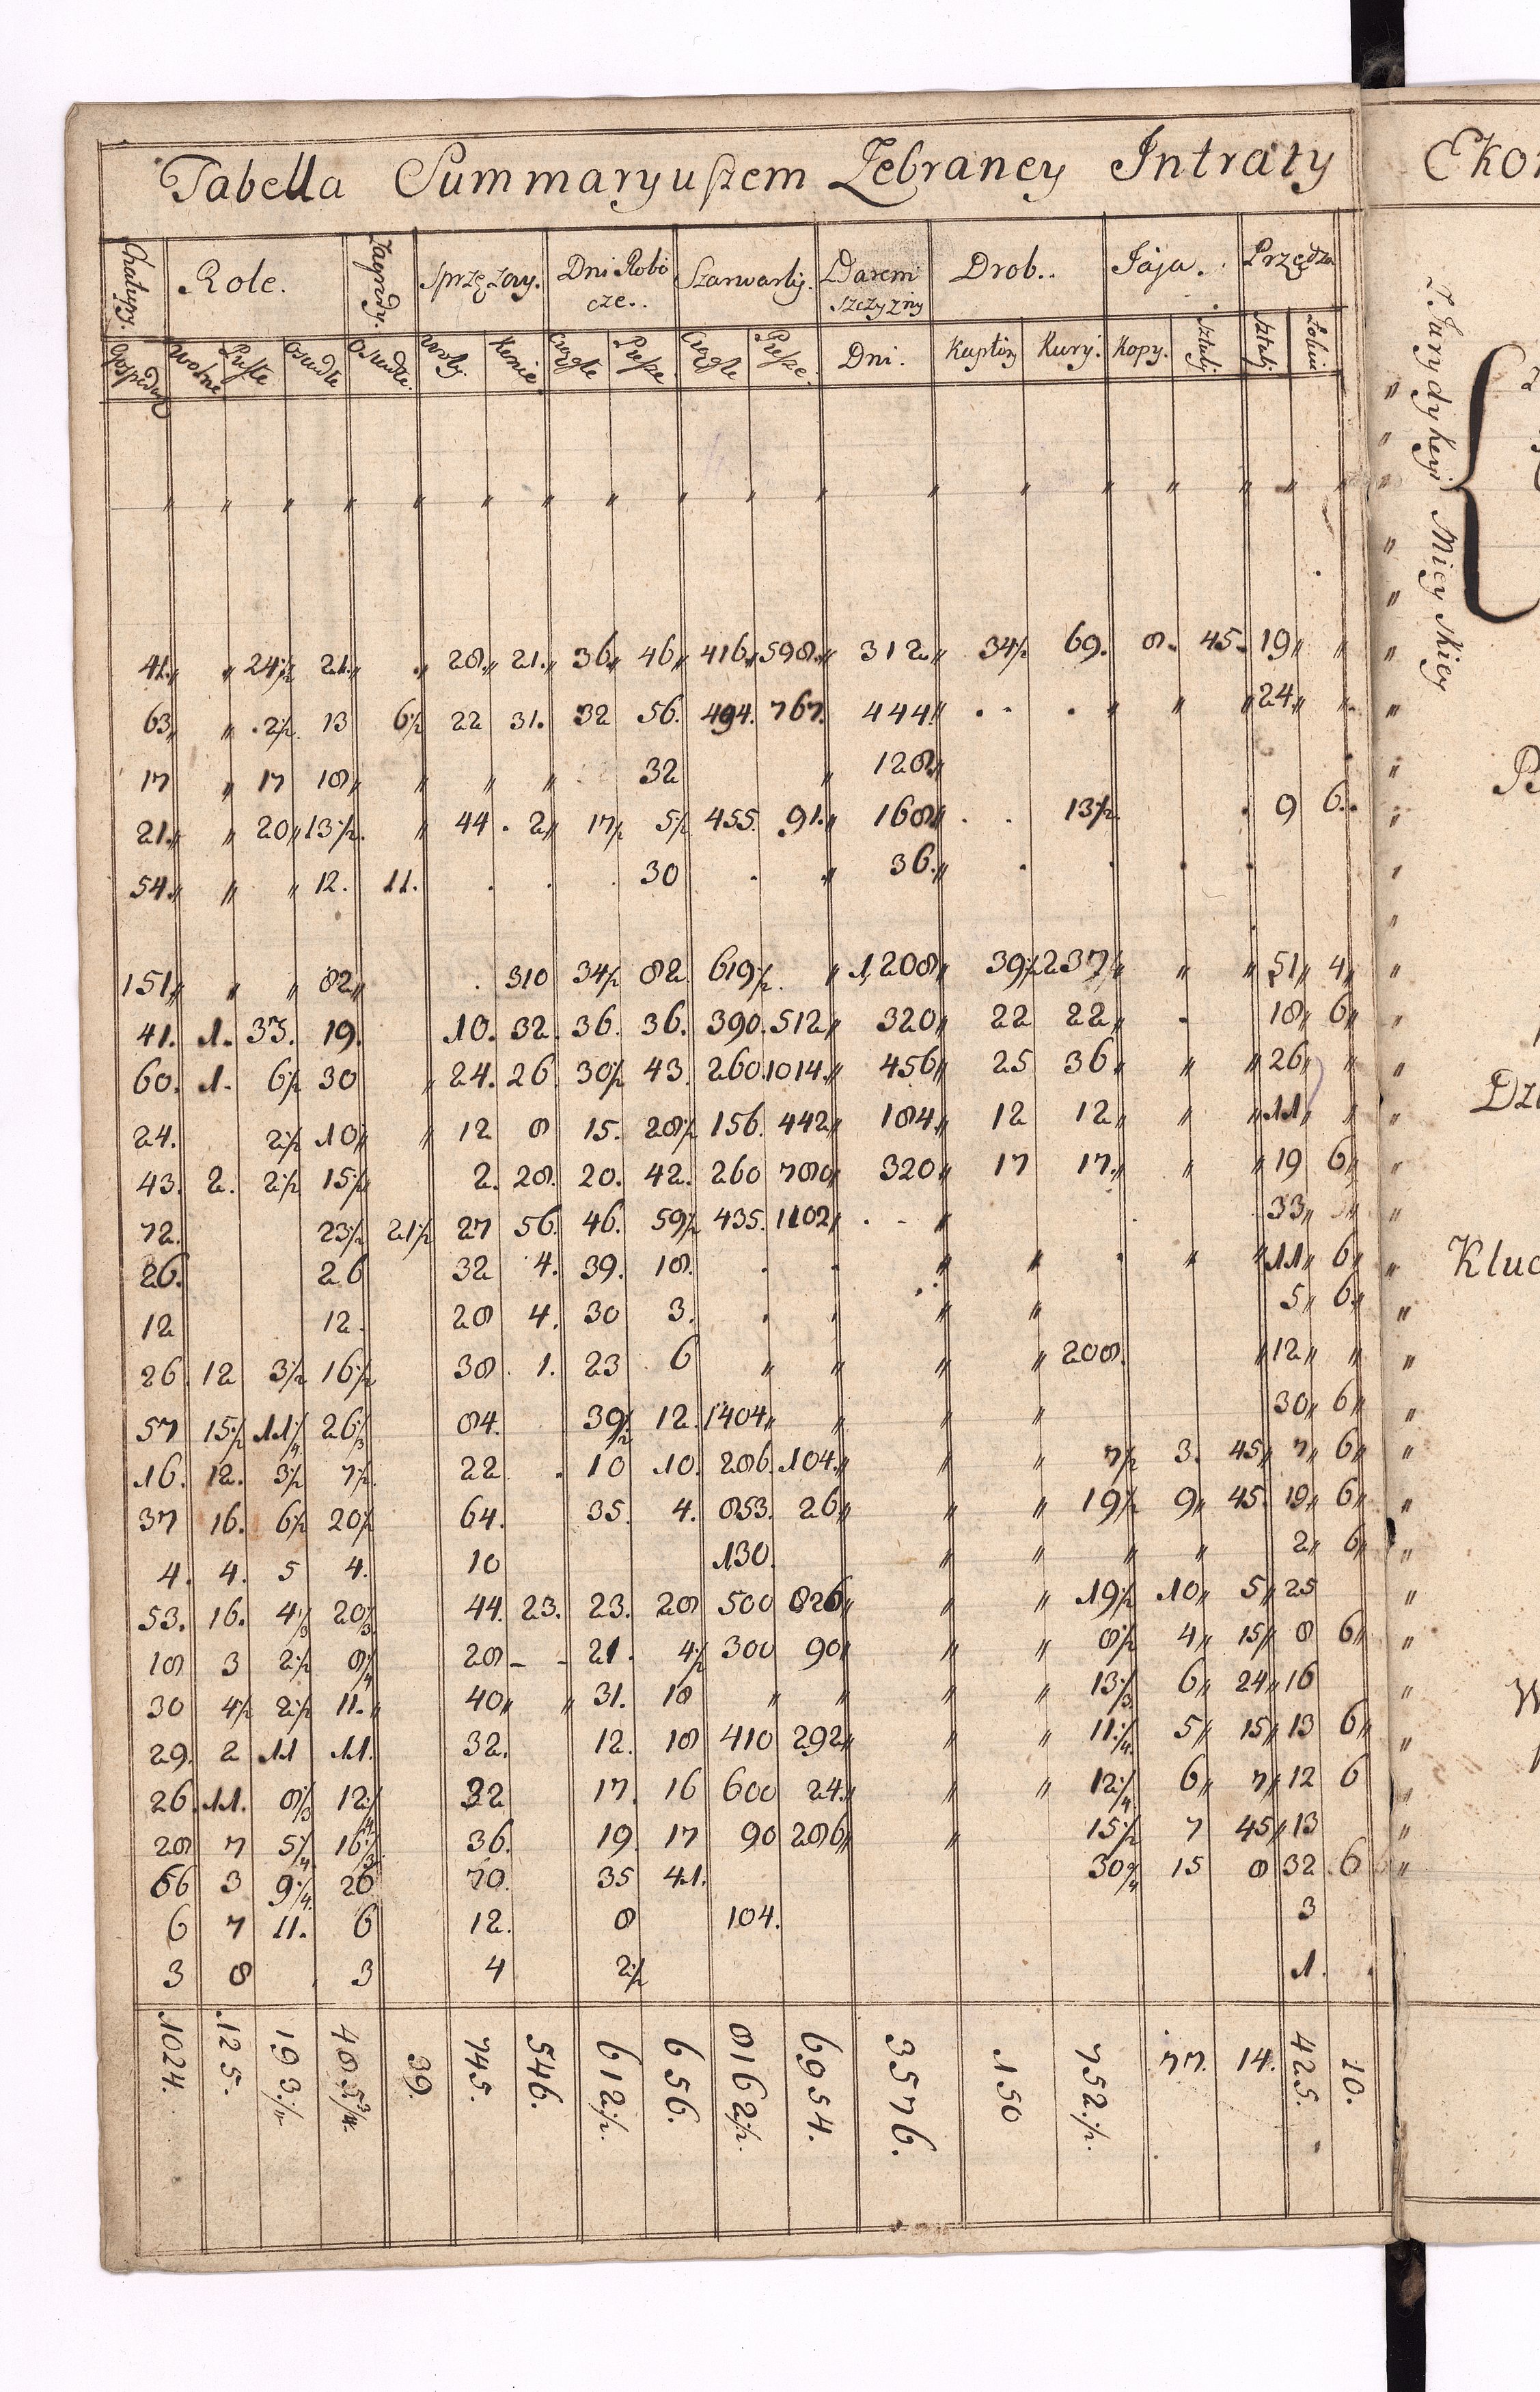 Tabella Summaryuszem Zebraney Intraty
Chałupy. Role. Zagrody. Sprzężowy. Dni Robo Szarwarki. Darem Drob.. Jaja. Przędza
cze.. szczyzny
Wolne Puste Osiadłe Osiadłe. Woły. Konie Ciągłe Piesze Ciągłe Piesze. Dni. Kapłony Kury. Kopy. Sztuki Sztuki Łokcie
41. „ 24½ 21„ „ 28„ 21„ 36„ 46„ 416„ 598„ 312„ 34½ 69. 8. 45. 19„ „
63„ „ 2½ 13 6½ 22 31. 32 56. 494. 767. 444„ . . . „ „ „ 24„ „
17 „ 17 18„ „ „ „ 32 „ 128„
21„ „ 20„ 13½. „ 44. 2„ 17½ 5½ 455. 91„ 168„ . . 13½. . 9 6.
54„ „ „ 12. 11. . . . 30 . „ 36„ . . . .
151„ „ „ 82„ . 310 34½ 82. 619½. „ 1,208„ 39½ 237„ „ „ 51„ 4„
41. 1. 33. 19. 10. 32. 36. 36. 390. 512„ 320„ 22 22„ . 18„ 6„
60. 1. 6½ 30 „ 24. 26 30½ 43. 260. 1014„ 456„ 25 36„ „ „ 26„ „
24. 2½ 10„ „ 12 8 15. 28½ 156. 442„ 184„ 12 12„ „ „ 11„ „
43. 2. 2½ 15½ 2. 28. 20. 42. 260 780„ 320„ 17 17„ „ „ 19 6„
72. 23½ 21½ 27 56. 46. 59½ 435. 1102„ . - „ . 33„ „
26. 26 32 4. 39. 18. . . „ „ . „ „ 11„ 6„
12 12. 28 4. 30 3. . . „ „ 5„ 6„
26. 12 3½ 16½ 38. 1. 23 6 „ „ „ „ 208. „ 12„ „
57 15½ 11¼ 26⅓ 84. 39½ 12. 1404„ „ „ „ 30„ 6„
16. 12. 3½ 7½. 22 . 10 10. 286. 104„ „ „ 7½ 3. 45„ 7„ 6„
37 16. 6½ 20½ 64. 35. 4. 853. 26„ „ „ 19½ 9„ 45. 19„ 6„
4. 4. 5 4. 10 130. „ „ „ „ 2„ 6„
53. 16. 4⅓ 20⅓ 44. 23. 23. 28 500 826„ „ „ 19½ 10„ 5„ 25
18 3 2½ 8¼ 28 - - 21. 4½ 300 90„ „ „ 8½ 4„ 15„ 8 6„
30 4½ 2½ 11„ 40„ „ 31. 18 „ „ „ „ 13⅓ 6„ 24„ 16
29. 2 11 11. 32. 12. 18 410 292„ „ „ 11¼. 5„ 15„ 13 6„
26. 11. 8⅓ 12¼ 32 17. 16 600 24„ „ „ 12¼ 6„ 7„ 12 6
28 7 5¼ 16⅓ 36. 19. 17 90 286„ „ 15½ 7 45„ 13
66 3 9¼. 26 70. 35 41. 30¾ 15 8 32 6
6 7 11. 6 12. 8 104. 3
3 8 3 4 2½ 1.
1024. 125. 39. 745. 546. 612½. 656. 8162½. 6954. 3576. 150 752½. 77. 14. 425. 10.
Jurydykcyi Mieyskiey
Kluc